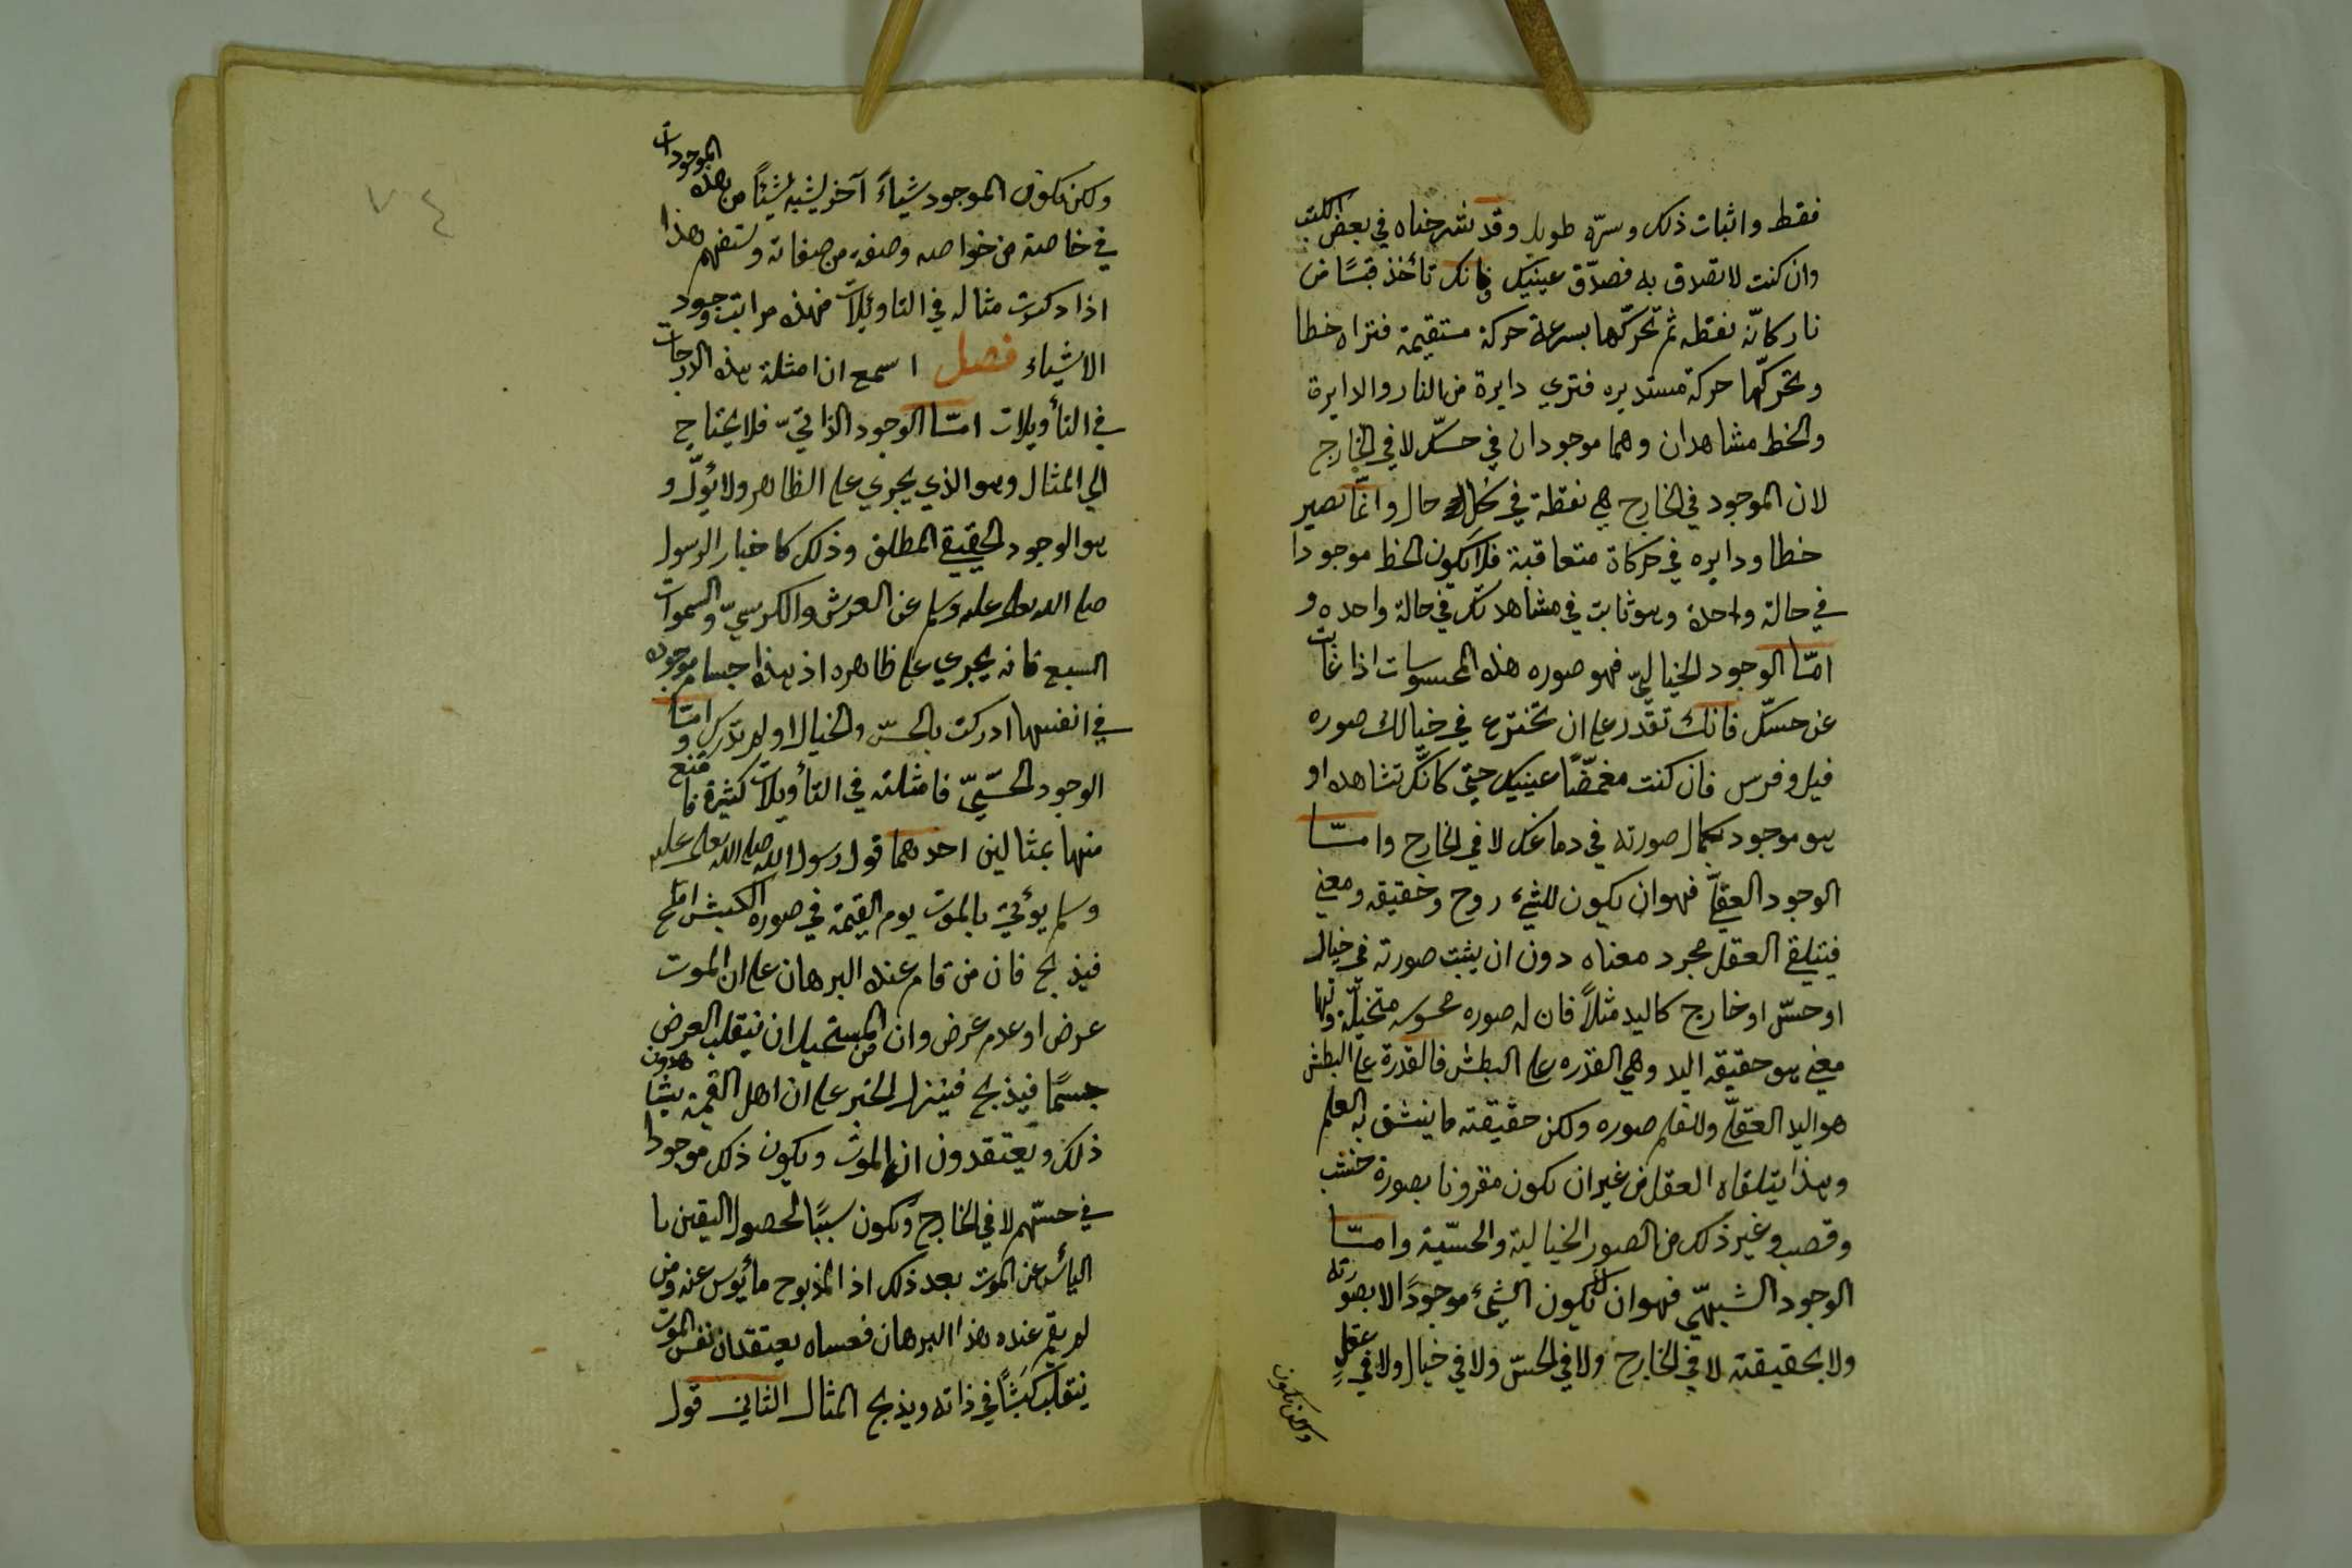 فقط واثبات ذلك وسرّه طويل وقد شرحناه في بعض الكتب
وان كنت لا تصدق به فصدّق عينيك فانك تأخذ قبسًا من
نار كانّه نقطه ثم تحركّها بسرعة حركة مستقيمة فتراه خطا
وتحركّها حركة مستديره فتري دايرة من النار والدايرة
والخط مشاهدان وهما موجودان في حسّك لا في الخارج
لان الموجود في الخارج هي نقطة في كل حال وانّما تصير
خطا ودايره في حركاة متعاقبة فلا يكون الخط موجودا
في حالة واحدة وهو ثابت في مشاهدتك في حالة واحده و
امّا الوجود الخياليّ فهو صوره هذه المحسوسات اذا غابت
عن حسّك فانك تقدر على ان تخترع في خيالك صوره
فيل وفرس فان كنت مغمضًا عينيك حتي كانّك تشاهده او
هو موجود بكمال صورته في دماغك لا في الخارج وامّا
الوجود العقليّ فهو ان يكون للشئ روح وحقيقه ومعني
فيتلقي العقل مجرد معناه دون ان يثبت صورته في خيال
او حسّ او خارج كاليد مثلاً فان له صوره محسوسه متخيلّة ولها
معني هو حقيقه اليد وهي القدره على البطش فالقدرة على البطش
هو اليد العقليّ وللقلم صوره ولكن حقيقته ما ينتقش به العلم
وهذا يتلقاه العقل من غير ان يكون مقرونا بصورة خشب
وقصب وغير ذلك من الصور الخيالية والحسّية وامّا
الوجود الشبهيّ فهو ان لا يكون الشئ موجودًا لا بصورته
ولا بحقيقته لا في الخارج ولا في الحسّ ولا في خيال ولا في عقلٍ
ولكن يكون
٧٤
ولكن يكون الموجود شياءً آخر يشبه شيئًا من هذه الموجودات
في خاصة من خواصه وصفة من صفاته وستفهم هذا
اذا ذكرت مثاله في التاويلات فهذه مراتب وجود
الاشياء فصل اسمع ان امثلة هذه الدرجات
في التأويلات امّا الوجود الذاتيّ فلا يحتاج
الي المثال وهو الذي يجري على الظاهر ولا يؤّل و
هو الوجود الحقيقي المطلق وذلك كاخبار الرسول
صلى الله تعالى عليه وسلم عن العرش والكرسيّ والسموات
السبع فانه يجري على ظاهره اذ هذا اجسام موجوده
في انفسها ادركت بالحسّ والخيال او لم تدرك وامّا
الوجود الحسّيّ فامثلته في التأويلات كثيرة فاقنع
منها بمثالين احدهما قول رسول الله صلى الله تعالى عليه
وسلم يؤتي بالموت يوم القيمة في صوره الكبش املح
فيذبح فان من قام عنده البرهان على ان الموت
عرض او عدم عرض وان من المستحيل ان ينقلب العرض
جسمًا فيذبح فينزل الخبر على ان اهل القيمة يشاهدون
ذلك ويعتقدون ان الموت ويكون ذلك موجودا
في حسّهم لا في الخارج ويكون سببًا لحصول اليقين با
اليأس عن الموت بعد ذلك اذ المذبوح مأيوس عنه ومن
لم يقم عنده هذا البرهان فعساه يعتقد ان نفس الموت
ينقلب كبشًا في ذاته ويذبح المثال الثاني قول